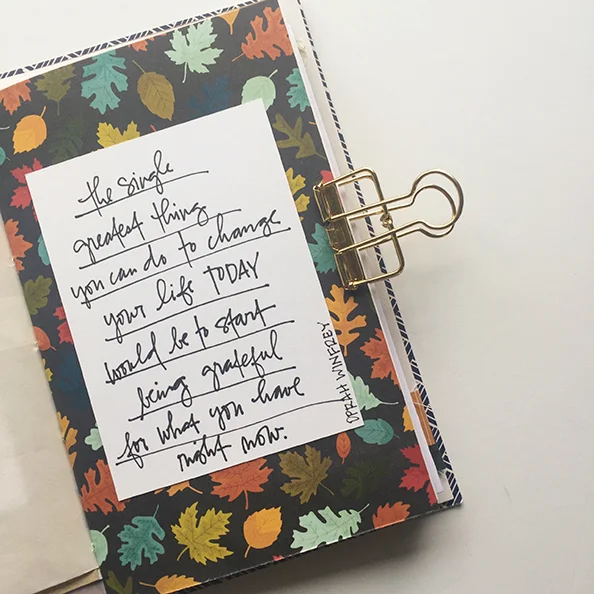 the single
greatest thing
you can do to change
your life TODAY
would be to start
being grateful
for what you have
right now.
OPRAH WINFREY